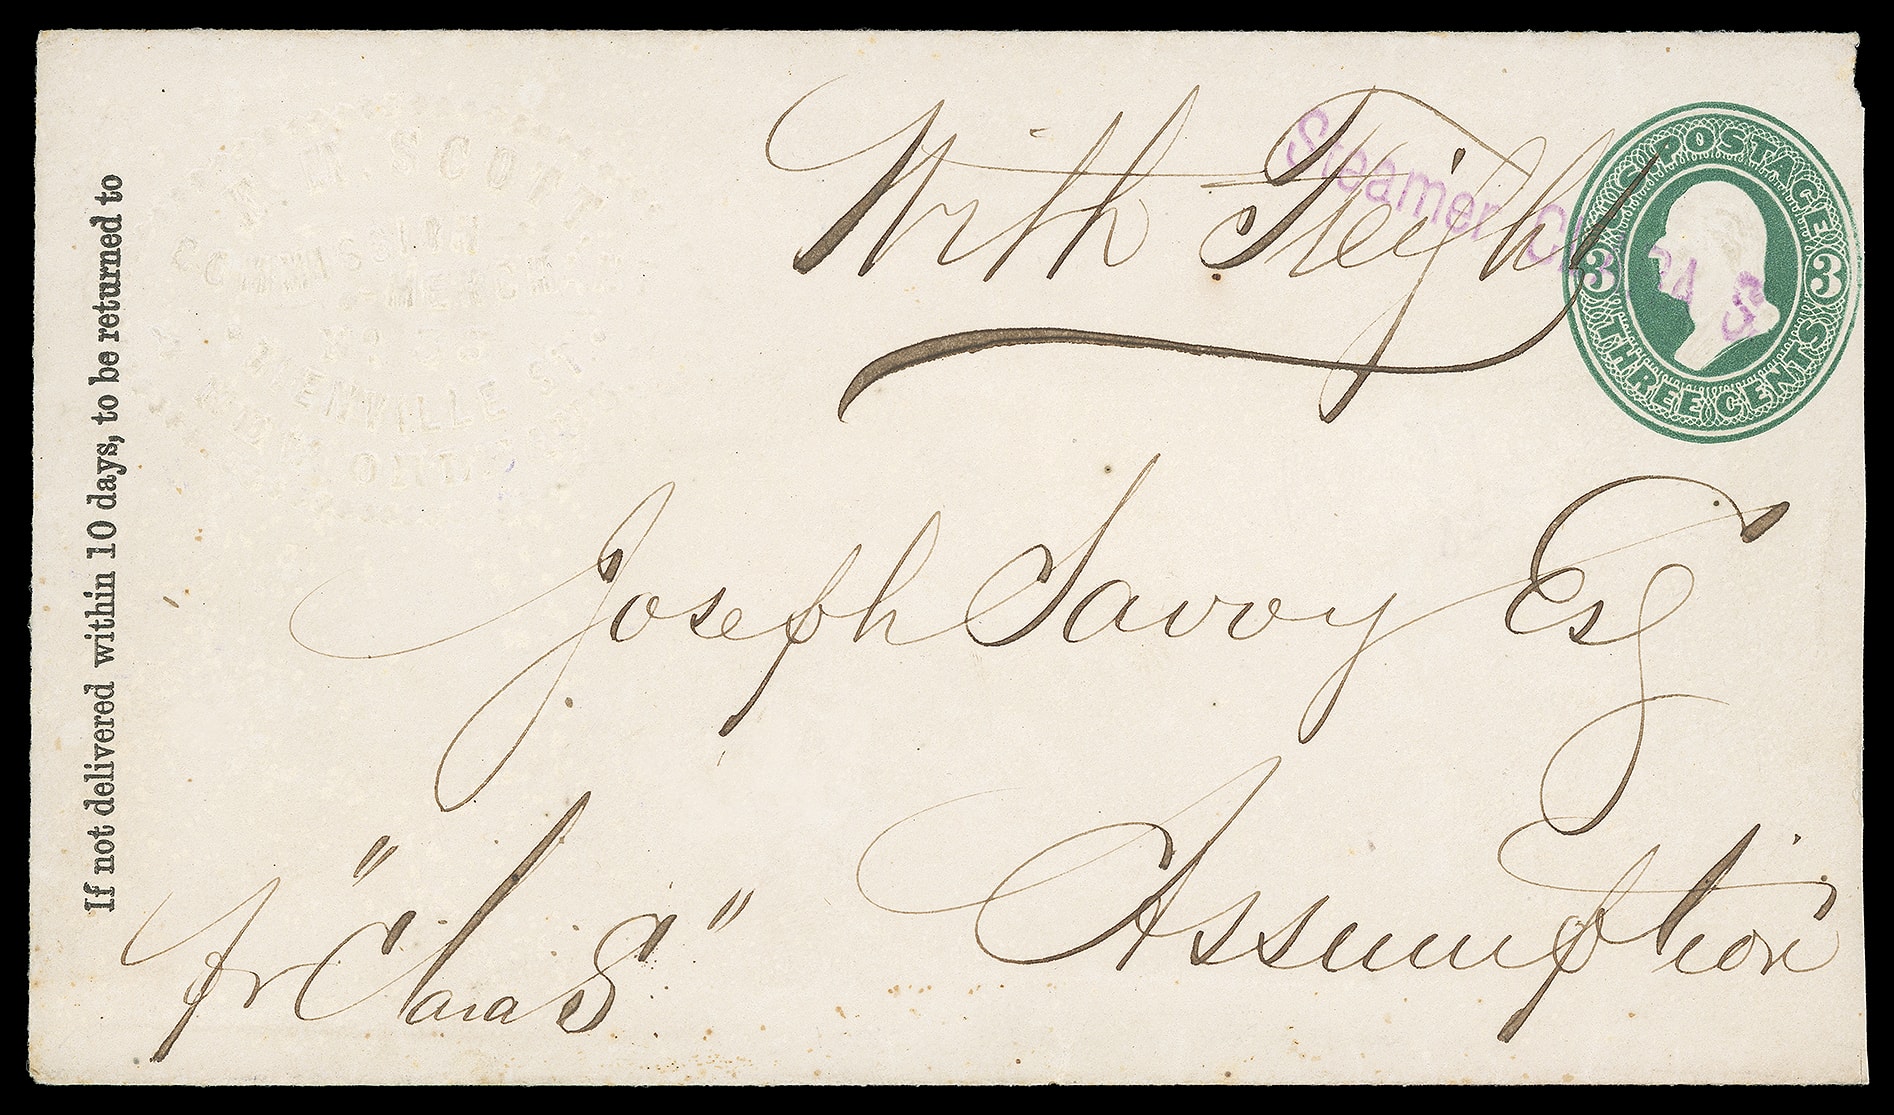 If not delivered within 10 days, to be returned to
SCOTT
COMMISSION
MERCHANT
ENVILLE ST
With Freight
Steamer CLARA S
U.S. POSTAGE
3 3
THREE CENTS
Joseph Savoy Esq
Assumption
pr "Clara S"